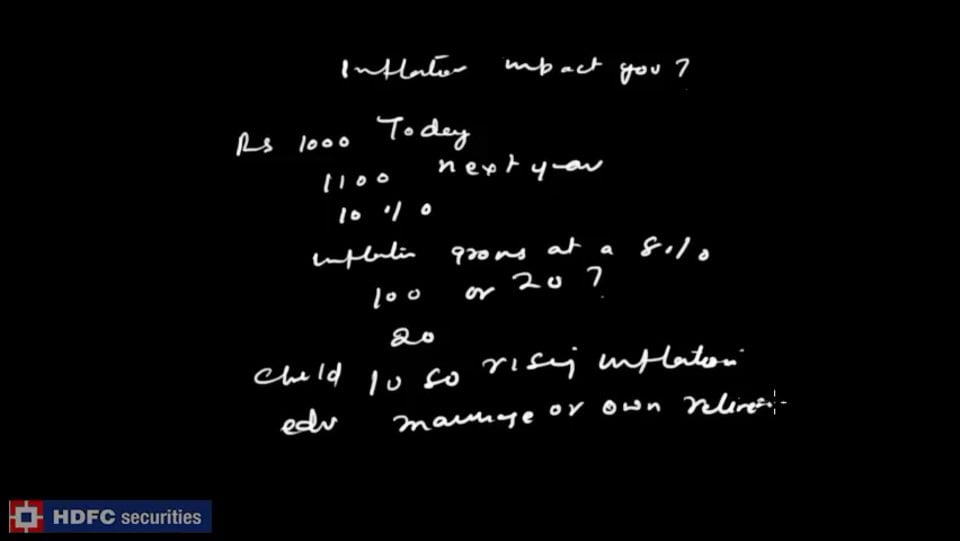 Inflation impact you?
Rs 1000 Today
1100 next year
10 %
inflation grows at a 8%
100 or 20?
20
Child 10 so rising inflation
edu marriage or own
HDFC securities